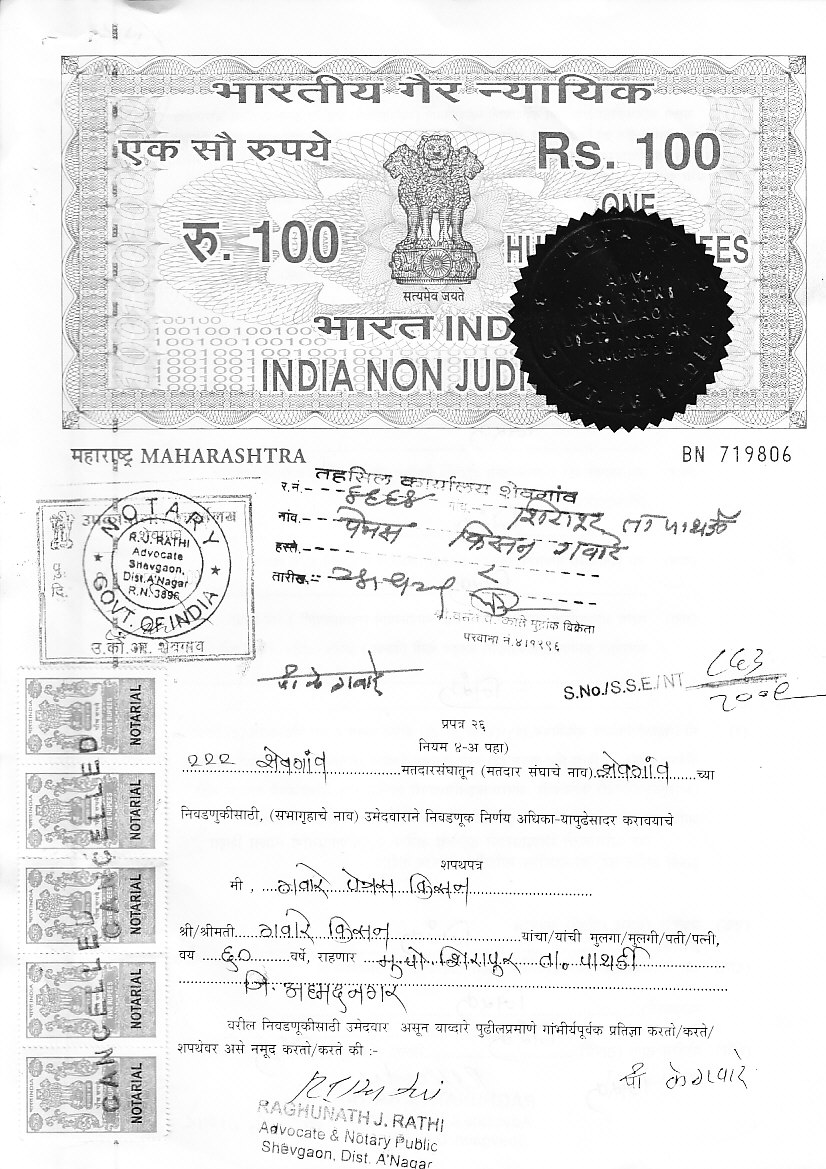 भारतीय गैर न्यायिक
एक सौ रुपये
Rs. 100
रु. 100
ONE
सत्यमेव जयते
भारत IND
INDIA NON JUDI
महाराष्ट्र MAHARASHTRA
BN 719806
तहसिल कार्यालय शेवगांव
र.नं.- ६६६४
नांव.- पेत्रस किसन गवारे शिरापूर ता पाथर्डी
हस्ते.-
तारीख.-
परवाना नं.४/१२९६
NOTARY
R.J. RATHI
Advocate
Shevgaon,
Dist.A'Nagar
R.N. 3896
GOVT. OF INDIA
उ.को.आ. शेवगांव
पी के गवारे
S.No./S.S.E./NT
प्रपत्र २६
नियम ४-अ पहा)
२२२ शेवगांव मतदारसंघातून (मतदार संघाचे नाव) शेवगांव च्या
निवडणुकीसाठी, (सभागृहाचे नाव) उमेदवाराने निवडणूक निर्णय अधिका-यापुढेसादर करावयाचे
शपथपत्र
मी , गवारे पेत्रस किसन
श्री/श्रीमती गवारे किसन यांचा/यांची मुलगा/मुलगी/पती/पत्नी,
वय ६० वर्षे, राहणार मु पो शिरापूर ता. पाथर्डी
जि. अहमदनगर
वरील निवडणूकीसाठी उमेदवार असून याव्दारे पुढीलप्रमाणे गांभीर्यपूर्वक प्रतिज्ञा करतो/करते/
शपथेवर असे नमूद करतो/करते की :-
पी के गवारे
RAGHUNATH J. RATHI
Advocate & Notary Public
Shevgaon, Dist. A'Nagar
NOTARIAL
NOTARIAL
NOTARIAL
NOTARIAL
NOTARIAL
CANCELLED
CANCELLED